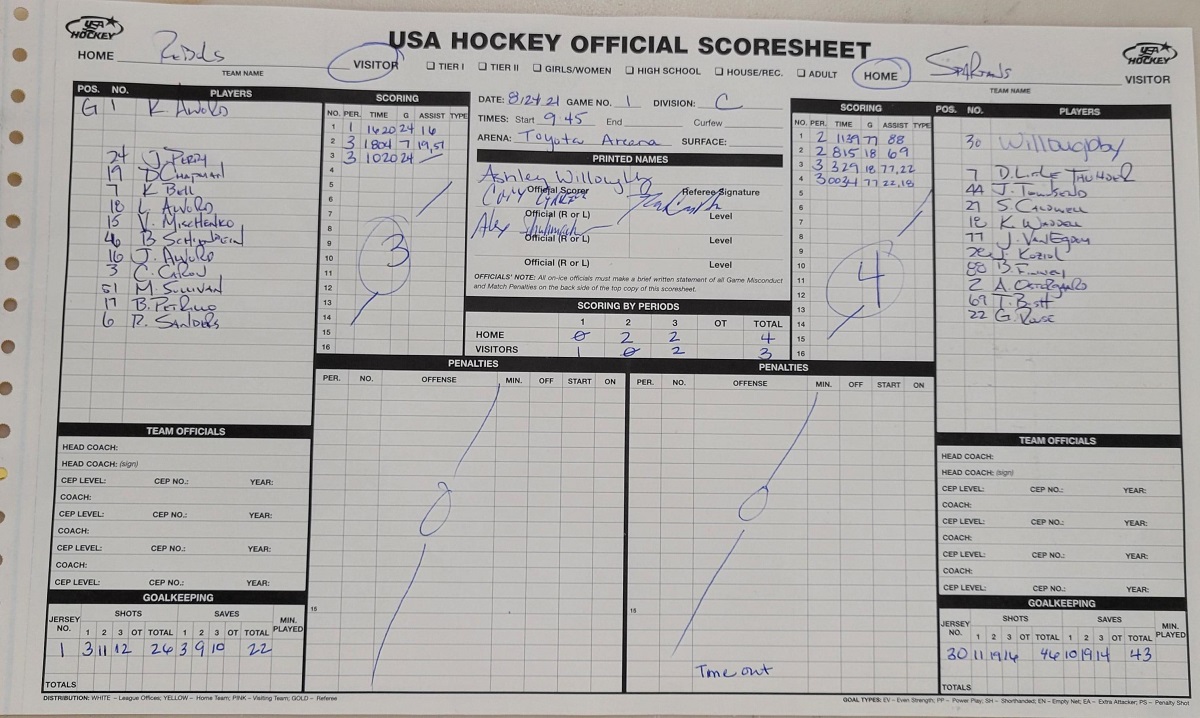 USA HOCKEY
USA HOCKEY OFFICIAL SCORESHEET
USA HOCKEY
HOME Rebels VISITOR
TEAM NAME
☐ TIER I ☐ TIER II ☐ GIRLS/WOMEN ☐ HIGH SCHOOL ☐ HOUSE/REC. ☐ ADULT
HOME Spartans VISITOR
TEAM NAME
POS. NO. PLAYERS
G 1 K Aword
24 J. Perry
19 D Chapman
7 K Bell
18 L. Aword
15 V. Mischenko
B
16 J. Aword
3 C.
51 M. Sullivan
17 B.
6 R. Sanders
SCORING
NO. PER. TIME G ASSIST TYPE
1 1 1620 24 16
2 3 1804 7 19,51
3 3 1020 24 —
4
5
6
7
8
9
10
11
12
13
14
15
16
3
DATE: 8/24/21 GAME NO. 1 DIVISION: C
TIMES: Start 9:45 End Curfew
ARENA: Toyota Arena SURFACE:
PRINTED NAMES
Ashley Willoughby
Official Scorer Referee Signature
Official (R or L) Level
Alex
Official (R or L) Level
Official (R or L) Level
OFFICIALS' NOTE: All on-ice officials must make a brief written statement of all Game Misconduct
and Match Penalties on the back side of the top copy of this scoresheet.
SCORING BY PERIODS
1 2 3 OT TOTAL
HOME 0 2 2 4
VISITORS 1 0 2 3
SCORING
NO. PER. TIME G ASSIST TYPE
1 2 1139 77 88
2 2 815 18 69
3 3 329 18 77,22
4 3 0034 77 22,18
5
6
7
8
9
10
11
12
13
14
15
16
4
POS. NO. PLAYERS
30 Willoughby
7 D. Little Thunder
44 J. Townsend
21 S. Caldwell
18 K. Waddell
77 J. Van Egdom
J. Koziol
88 B. Finney
2 A.
69 T. Bott
22 G.
PENALTIES
PER. NO. OFFENSE MIN. OFF START ON
0
15
PENALTIES
PER. NO. OFFENSE MIN. OFF START ON
0
15
Time out
TEAM OFFICIALS
HEAD COACH:
HEAD COACH: (sign)
CEP LEVEL: CEP NO.: YEAR:
COACH:
CEP LEVEL: CEP NO.: YEAR:
COACH:
CEP LEVEL: CEP NO.: YEAR:
COACH:
CEP LEVEL: CEP NO.: YEAR:
GOALKEEPING
JERSEY NO. SHOTS SAVES MIN. PLAYED
1 2 3 OT TOTAL 1 2 3 OT TOTAL
1 3 11 12 26 3 9 10 22
TOTALS
TEAM OFFICIALS
HEAD COACH:
HEAD COACH: (sign)
CEP LEVEL: CEP NO.: YEAR:
COACH:
CEP LEVEL: CEP NO.: YEAR:
COACH:
CEP LEVEL: CEP NO.: YEAR:
COACH:
CEP LEVEL: CEP NO.: YEAR:
GOALKEEPING
JERSEY NO. SHOTS SAVES MIN. PLAYED
1 2 3 OT TOTAL 1 2 3 OT TOTAL
30 11 19 16 46 10 19 14 43
TOTALS
DISTRIBUTION: WHITE – League Offices; YELLOW – Home Team; PINK – Visiting Team; GOLD – Referee
GOAL TYPES: EV – Even Strength; PP – Power Play; SH – Shorthanded; EN – Empty Net; EA – Extra Attacker; PS – Penalty Shot